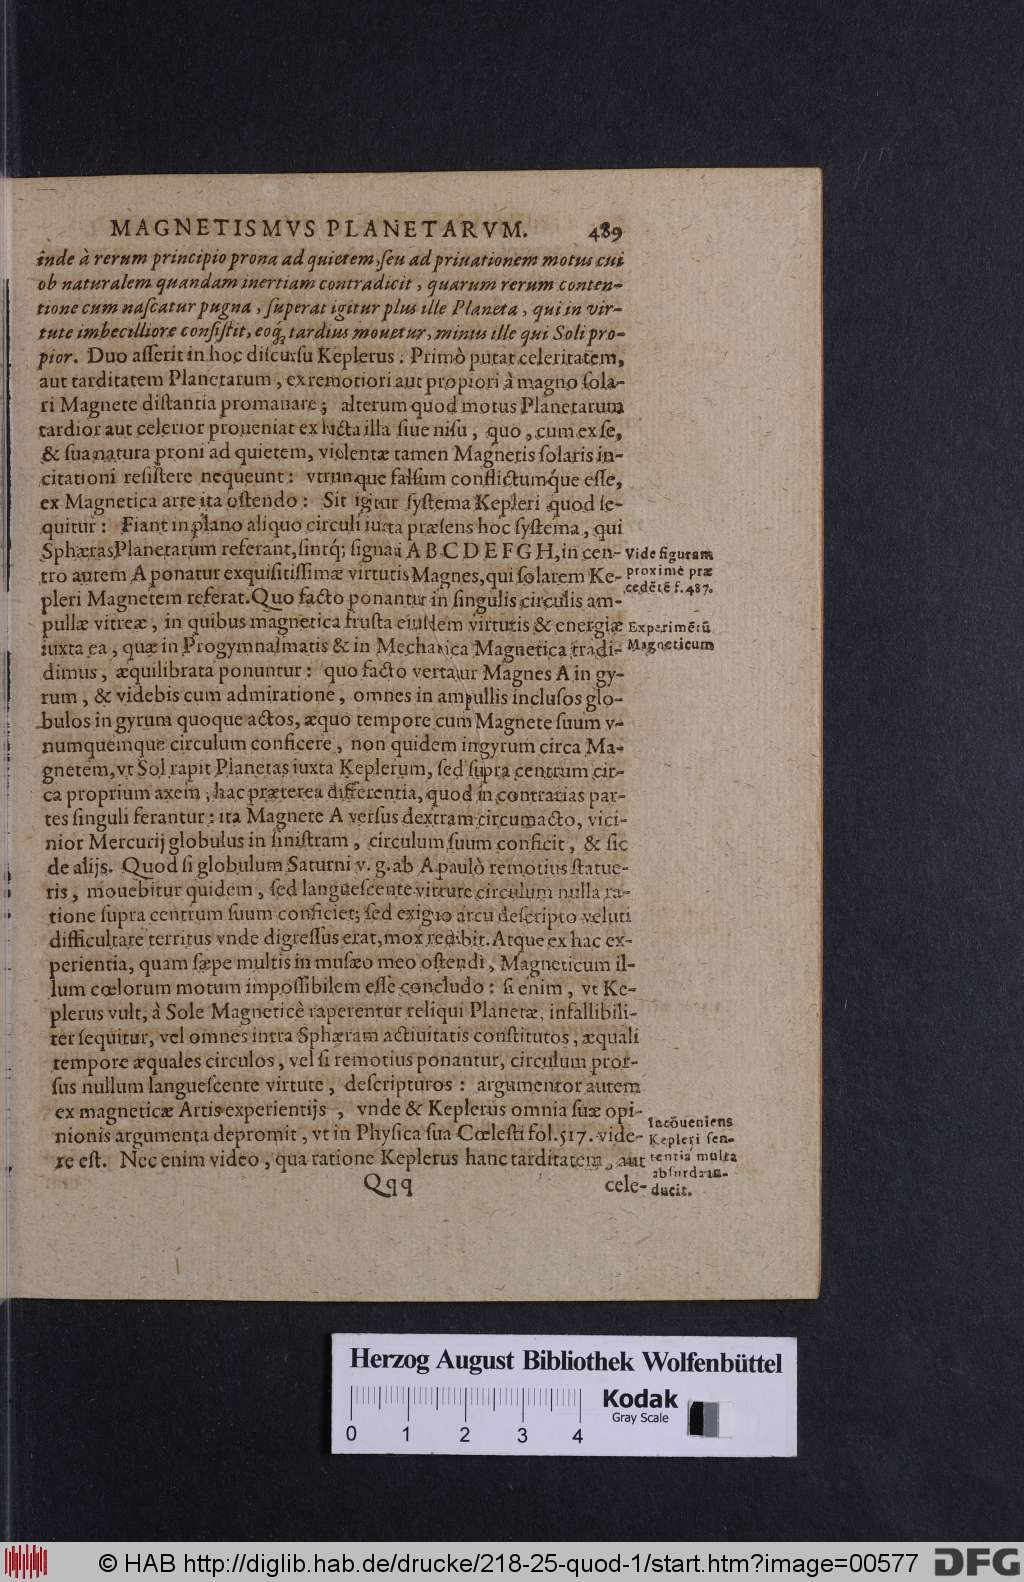 MAGNETISMVS PLANETARVM. 489
inde à rerum principio prona ad quietem, ſeu ad priuationem motus cui
ob naturalem quandam inertiam contradicit, quarum rerum conten-
tione cum naſcatur pugna, ſuperat igitur plus ille Planeta, qui in vir-
tute imbecilliore conſiſtit, eoq́; tardius mouetur, minus ille qui Soli pro-
pior. Duo aſſerit in hoc diſcurſu Keplerus: Primò putat celeritatem,
aut tarditatem Planetarum, ex remotiori aut propiori à magno ſola-
ri Magnete diſtantia promanare; alterum quod motus Planetarum
tardior aut celerior proueniat ex lucta illa ſiue niſu, quo, cum ex ſe,
& ſua natura proni ad quietem, violentæ tamen Magnetis ſolaris in-
citationi reſiſtere nequeunt: vtrunque falſum conflictumq́ue eſſe,
ex Magnetica arte ita oſtendo: Sit igitur ſyſtema Kepleri quod ſe-
quitur: Fiant in plano aliquo circuli iuxta præſens hoc ſyſtema, qui
Sphæras Planetarum referant, ſintq́; ſignati A B C D E F G H, in cen-
tro autem A ponatur exquiſitiſſimæ virtutis Magnes, qui ſolarem Ke-
pleri Magnetem referat. Quo facto ponantur in ſingulis circulis am-
pullæ vitreæ, in quibus magnetica fruſta eiuſdem virtutis & energiæ
iuxta ea, quæ in Progymnaſmatis & in Mechanica Magnetica tradi-
dimus, æquilibrata ponuntur: quo facto vertatur Magnes A in gy-
rum, & videbis cum admiratione, omnes in ampullis incluſos glo-
bulos in gyrum quoque actos, æquo tempore cum Magnete ſuum v-
numquemque circulum conficere, non quidem in gyrum circa Ma-
gnetem, vt Sol rapit Planetas iuxta Keplerum, ſed ſupra centrum cir-
ca proprium axem, hac præterea differentia, quod in contrarias par-
tes ſinguli ferantur: ita Magnete A verſus dextram circumacto, vici-
nior Mercurij globulus in ſiniſtram, circulum ſuum conficit, & ſic
de alijs. Quod ſi globulum Saturni v. g. ab A paulò remotius ſtatue-
ris, mouebitur quidem, ſed langueſcente virtute circulum nulla ra-
tione ſupra centrum ſuum conficiet; ſed exiguo arcu deſcripto veluti
difficultate territus vnde digreſſus erat, mox redibit. Atque ex hac ex-
perientia, quam ſæpe multis in muſæo meo oſtendi, Magneticum il-
lum cœlorum motum impoſſibilem eſſe concludo: ſi enim, vt Ke-
plerus vult, à Sole Magneticè raperentur reliqui Planetæ, infallibili-
ter ſequitur, vel omnes intra Sphæram actiuitatis conſtitutos, æquali
tempore æquales circulos, vel ſi remotius ponantur, circulum pror-
ſus nullum langueſcente virtute, deſcripturos: argumentor autem
ex magneticæ Artis experientijs, vnde & Keplerus omnia ſuæ opi-
nionis argumenta depromit, vt in Phyſica ſua Cœleſti fol. 517. vide-
re eſt. Nec enim video, qua ratione Keplerus hanc tarditatem, aut
Qqq cele-
Vide figuram
proximè præ
cedētē f. 487.
Experimētū
Magneticum
Incōueniens
Kepleri ſen-
tentia multa
abſurda in-
ducit.
Herzog August Bibliothek Wolfenbüttel
Kodak
Gray Scale
0 1 2 3 4
© HAB http://diglib.hab.de/drucke/218-25-quod-1/start.htm?image=00577
DFG